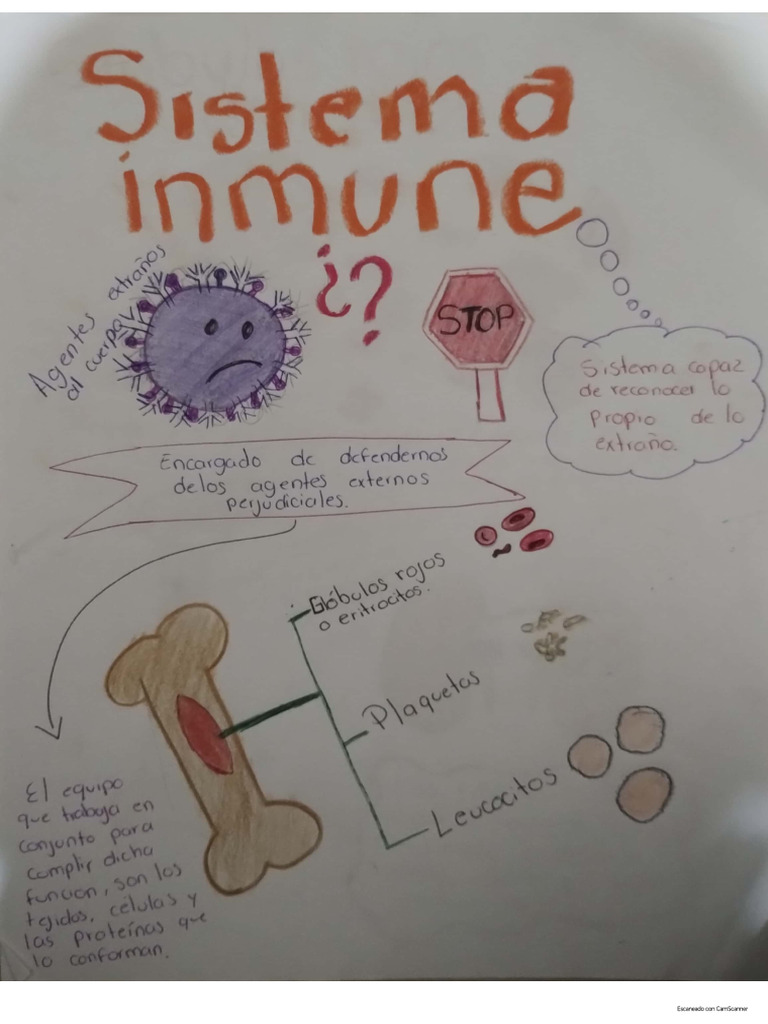 Sistema
inmune
¿?
Agentes extraños
al cuerpo
STOP
Sistema capaz
de reconocer lo
propio de lo
extraño.
Encargado de defendernos
delos agentes externos
perjudiciales.
Glóbulos rojos
o eritrocitos.
Plaquetas
Leucocitos
El equipo
que trabaja en
conjunto para
cumplir dicha
función, son los
tejidos, células y
las proteínas que
lo conforman.
Escaneado con CamScanner